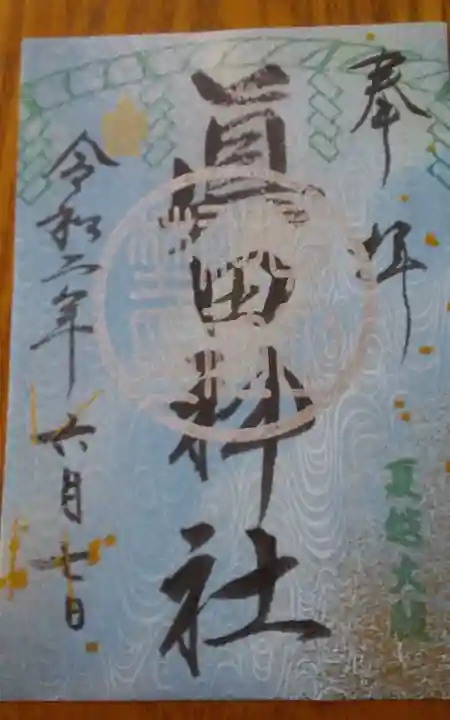 奉拝
夏越大祓
眞田神社
令和二年六月七日